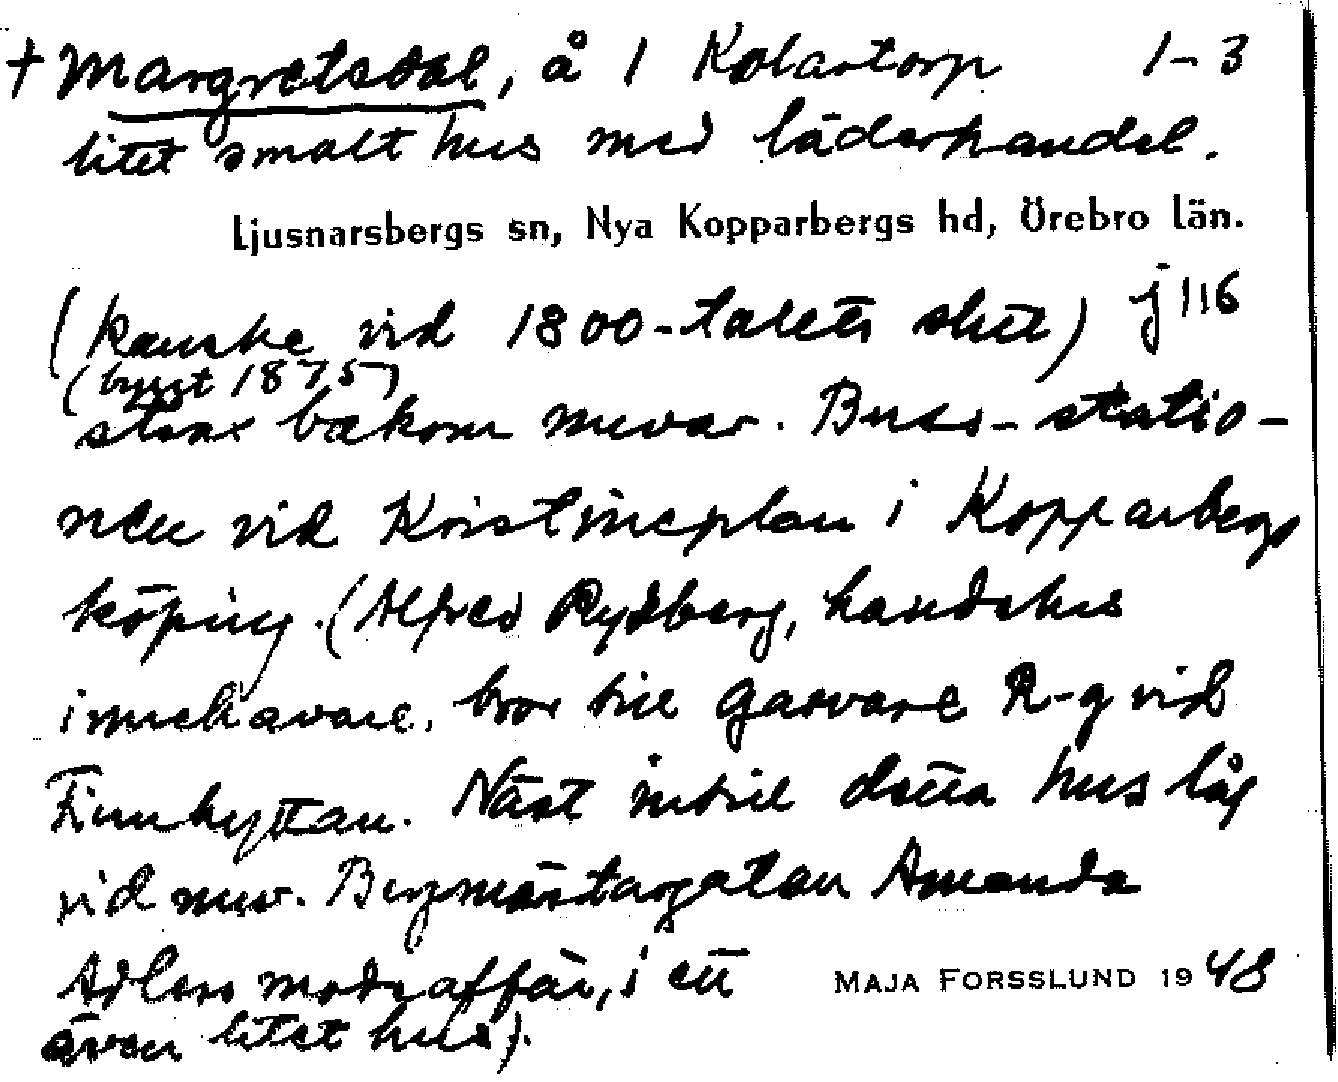 † Margretsdal, å 1 Kolartorp 1-3
litet smalt hus med läderhandel.
Ljusnarsbergs sn, Nya Kopparbergs hd, Örebro län.
(kanske vid 1800-talets slut) j 116
(byggt 1875)
strax bakom nuvar. Buss-statio-
nen vid Kristineplan i Kopparbergs
köping. (Alfred Rydberg, handelsh
innehavare. bror till garvare R-g vid
Finnhyttan. Näst intill detta hus låg
vid nuv. Bergmästargatan Amanda
Adlers modeaffär, i ett MAJA FORSSLUND 1948
även litet hus).